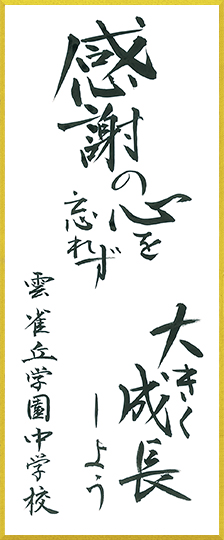 感謝の心を
忘れず
大きく
成長
しよう
雲雀丘学園中学校